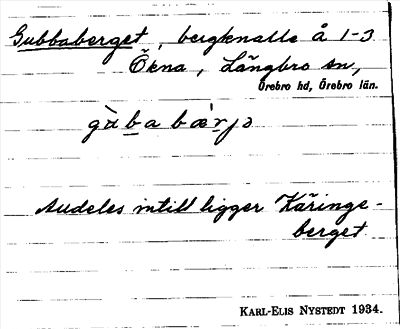 Gubbaberget, bergknalle å 1-3
Ökna, Längbro sn,
Örebro hd, Örebro län.
gùba bæ̀rjə
Alldeles intill ligger Käringe-
berget
KARL-ELIS NYSTEDT 1934.